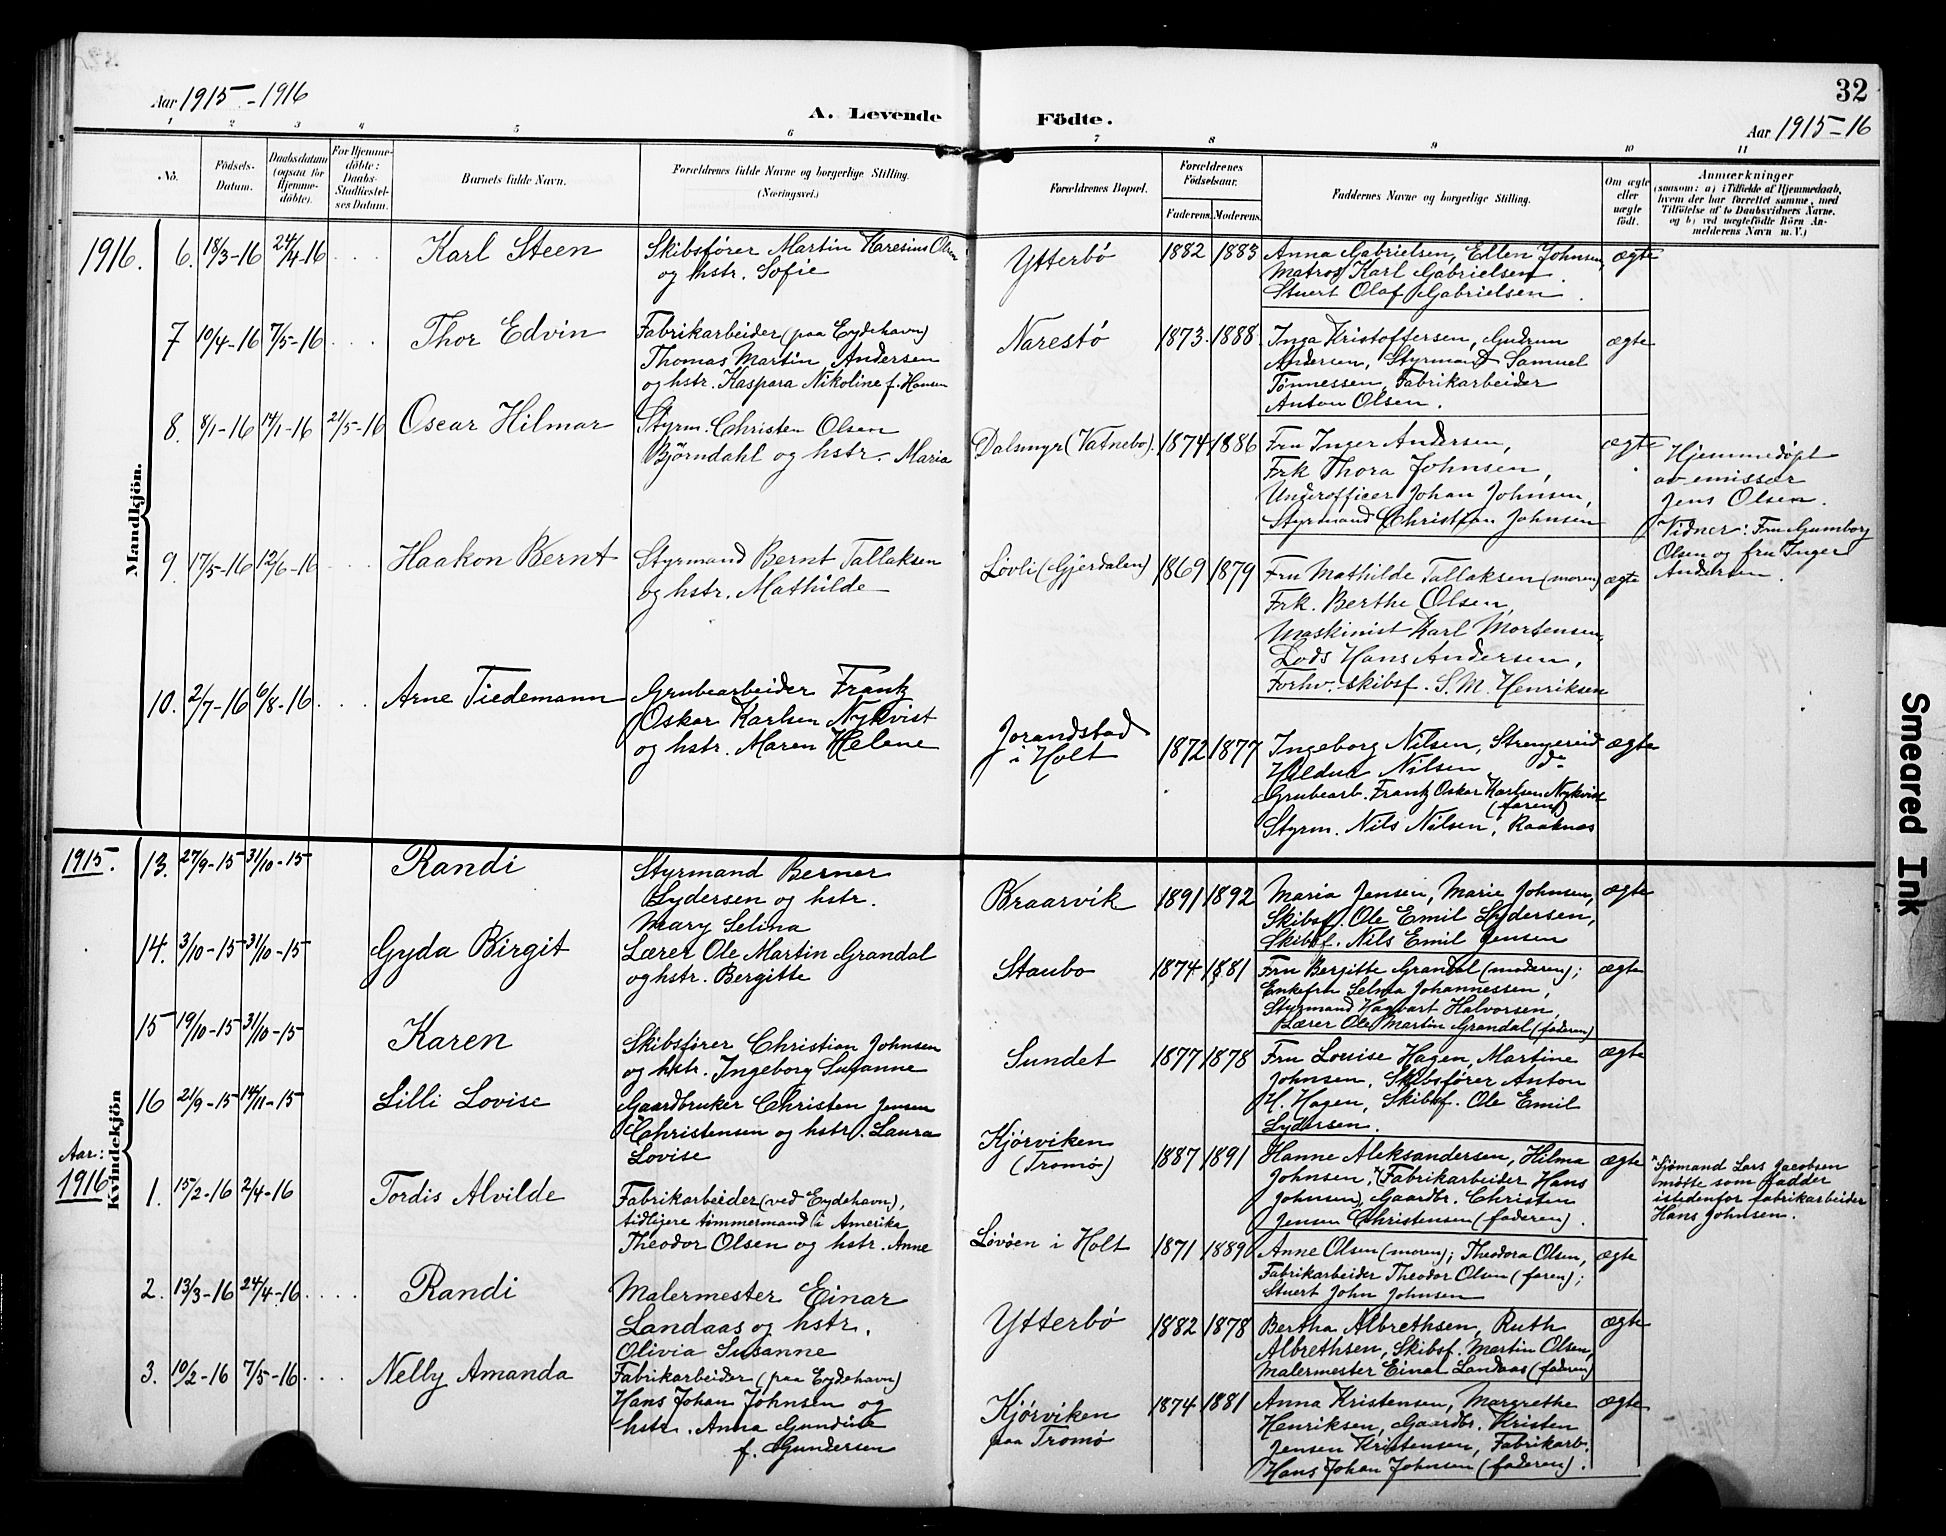 Aar 1915-1916
A. Levende
Födte.
32
Aar 1915-16
1 2 3 4 5 6 7 8 9 10 11
No.
Födsels-
Datum.
Daabsdatum
(ogsaa for
Hjemme-
döbte).
For Hjemme-
döbte:
Daabs-
Stadfæstel-
ses Datum.
Barnets fulde Navn.
Forældrenes fulde Navne og borgerlige Stilling.
(Næringsvei.)
Forældrenes Bopæl.
Forældrenes
Födselsaar.
Faderens. Moderens.
Faddernes Navne og borgerlige Stilling.
Om ægte
eller
uægte
födt.
Anmærkninger
(saasom: a) i Tilfælde af Hjemmedaab,
hvem der har forrettet samme, med
Tilföielse af to Daabsvidners Navne,
og b) ved uægtefödte Börn An-
melderens Navn m. V.)
Mandkjön.
1916. 6. 18/3-16 24/4-16 Karl Steen
Skibsfører Martin Karesius Olsen
og hstr. Sofie
Ytterbö 1882 1883
Anna Gabrielsen, Ellen Johnsen,
Matros Karl Gabrielsen
Stuert Olaf Gabrielsen.
ægte
7 10/4-16 7/5-16 Thor Edvin
Fabrikarbeider (paa Eydehavn)
Thomas Martin Andersen
og hstr. Kaspara Nikoline f. Hansen
Narestö 1873 1888
Inga Kristoffersen, Gudrun
Andersen, Styrmand Samuel
Tönnessen, Fabrikarbeider
Anton Olsen.
ægte
8. 8/1-16 14/1-16 21/5-16 Oscar Hilmar
Styrm. Christen Olsen
Björndahl og hstr. Maria
Dalsmyr (Vatnebo). 1874 1886
Fru Inger Andersen,
Frk Thora Johnsen,
Underofficer Johan Johnsen,
Styrmand Christian Johnsen
ægte
Hjemmedøpt
av emissær
Jens Olsen.
Vidner: Fru Gumborg
Olsen og fru Inger
Andersen.
9. 17/5-16 12/6-16 Haakon Bernt
Styrmand Bernt Tallaksen
og hstr. Mathilde
Løvli (Gjerdalen) 1869 1879
Fru Mathilde Tallaksen (moren)
Frk. Berthe Olsen,
Maskinist Karl Mortensen,
Lods Hans Andersen,
Forhv. skibsf. S. M. Henriksen
ægte
10. 2/7-16 6/8-16 Arne Tiedemann
Grubearbeider Frantz
Oskar Karlsen Nykvist
og hstr. Maren Helene
Jorandstad
i Holt
1872 1877
Ingeborg Nilsen, Strengereid
Hildur Nilsen do
Grubearb. Frantz Oskar Karlsen Nykvist
(faren)
Styrm. Nils Nilsen, Raaknes
ægte
Kvindekjön
1915. 13. 27/9-15 31/10-15 Randi
Styrmand Berner
Lydersen og hstr.
Mary Selina
Braarvik 1891 1892
Maria Jensen, Marie Johnsen,
Skibsf. Ole Emil Lydersen,
Skibsf. Nils Emil Jensen
ægte
14. 3/10-15 31/10-15 Gyda Birgit
Lærer Ole Martin Grandal
og hstr. Bergitte
Staubo 1874 1881
Fru Bergitte Grandal (moderen);
Enkefru Selma Johannessen,
Styrmand Hagbart Halvorsen,
Lærer Ole Martin Grandal (faderen)
ægte
15 19/10-15 31/10-15 Karen
Skibsfører Christian Johnsen
og hstr. Ingeborg Susanne
Sundet 1877 1878
Fru Louise Hagen, Martine
Johnsen, Skibsfører Anton
H. Hagen, Skibsf. Ole Emil
Lydersen.
ægte
16 21/9-15 14/11-15 Lilli Lovise
Gaardbruker Christen Jensen
Christensen og hstr. Laura
Lovise
Kjørviken
(Tromø)
1887 1891
Hanne Aleksandersen, Hilma
Johnsen, Fabrikarbeider Hans
Johnsen, Gaardbr. Christen
Jensen Christensen (faderen).
ægte
Sjömand Lars Jacobsen
møtte som fadder
istedenfor fabrikarbeider
Hans Johnsen.
Aar:
1916 1. 15/2-16 2/4-16 Tordis Alvilde
Fabrikarbeider (ved Eydehavn),
tidligere tømmermand i Amerika,
Theodor Olsen og hstr. Anne
Løvøen i Holt 1871 1889
Anne Olsen (moren); Theodora Olsen,
Fabrikarbeider Theodor Olsen (faren);
Stuert John Johnsen
ægte
2. 13/3-16 24/4-16 Randi
Malermester Einar
Landaas og hstr.
Olivia Susanne
Ytterbø 1882 1878
Bertha Albrethsen, Ruth
Albrethsen, Skibsf. Martin Olsen,
Malermester Einar Landaas (faderen)
ægte
3. 10/2-16 7/5-16 Nelly Amanda
Fabrikarbeider (paa Eydehavn)
Hans Johan Johnsen og
hstr. Anna Gundine
f. Gundersen
Kjørviken
paa Tromø
1874 1881
Anna Kristensen, Margrethe
Henriksen, Gaardbr. Kristen
Jensen Kristensen, Fabrikarb.
Hans Johan Johnsen (faderen).
ægte
Smeared Ink